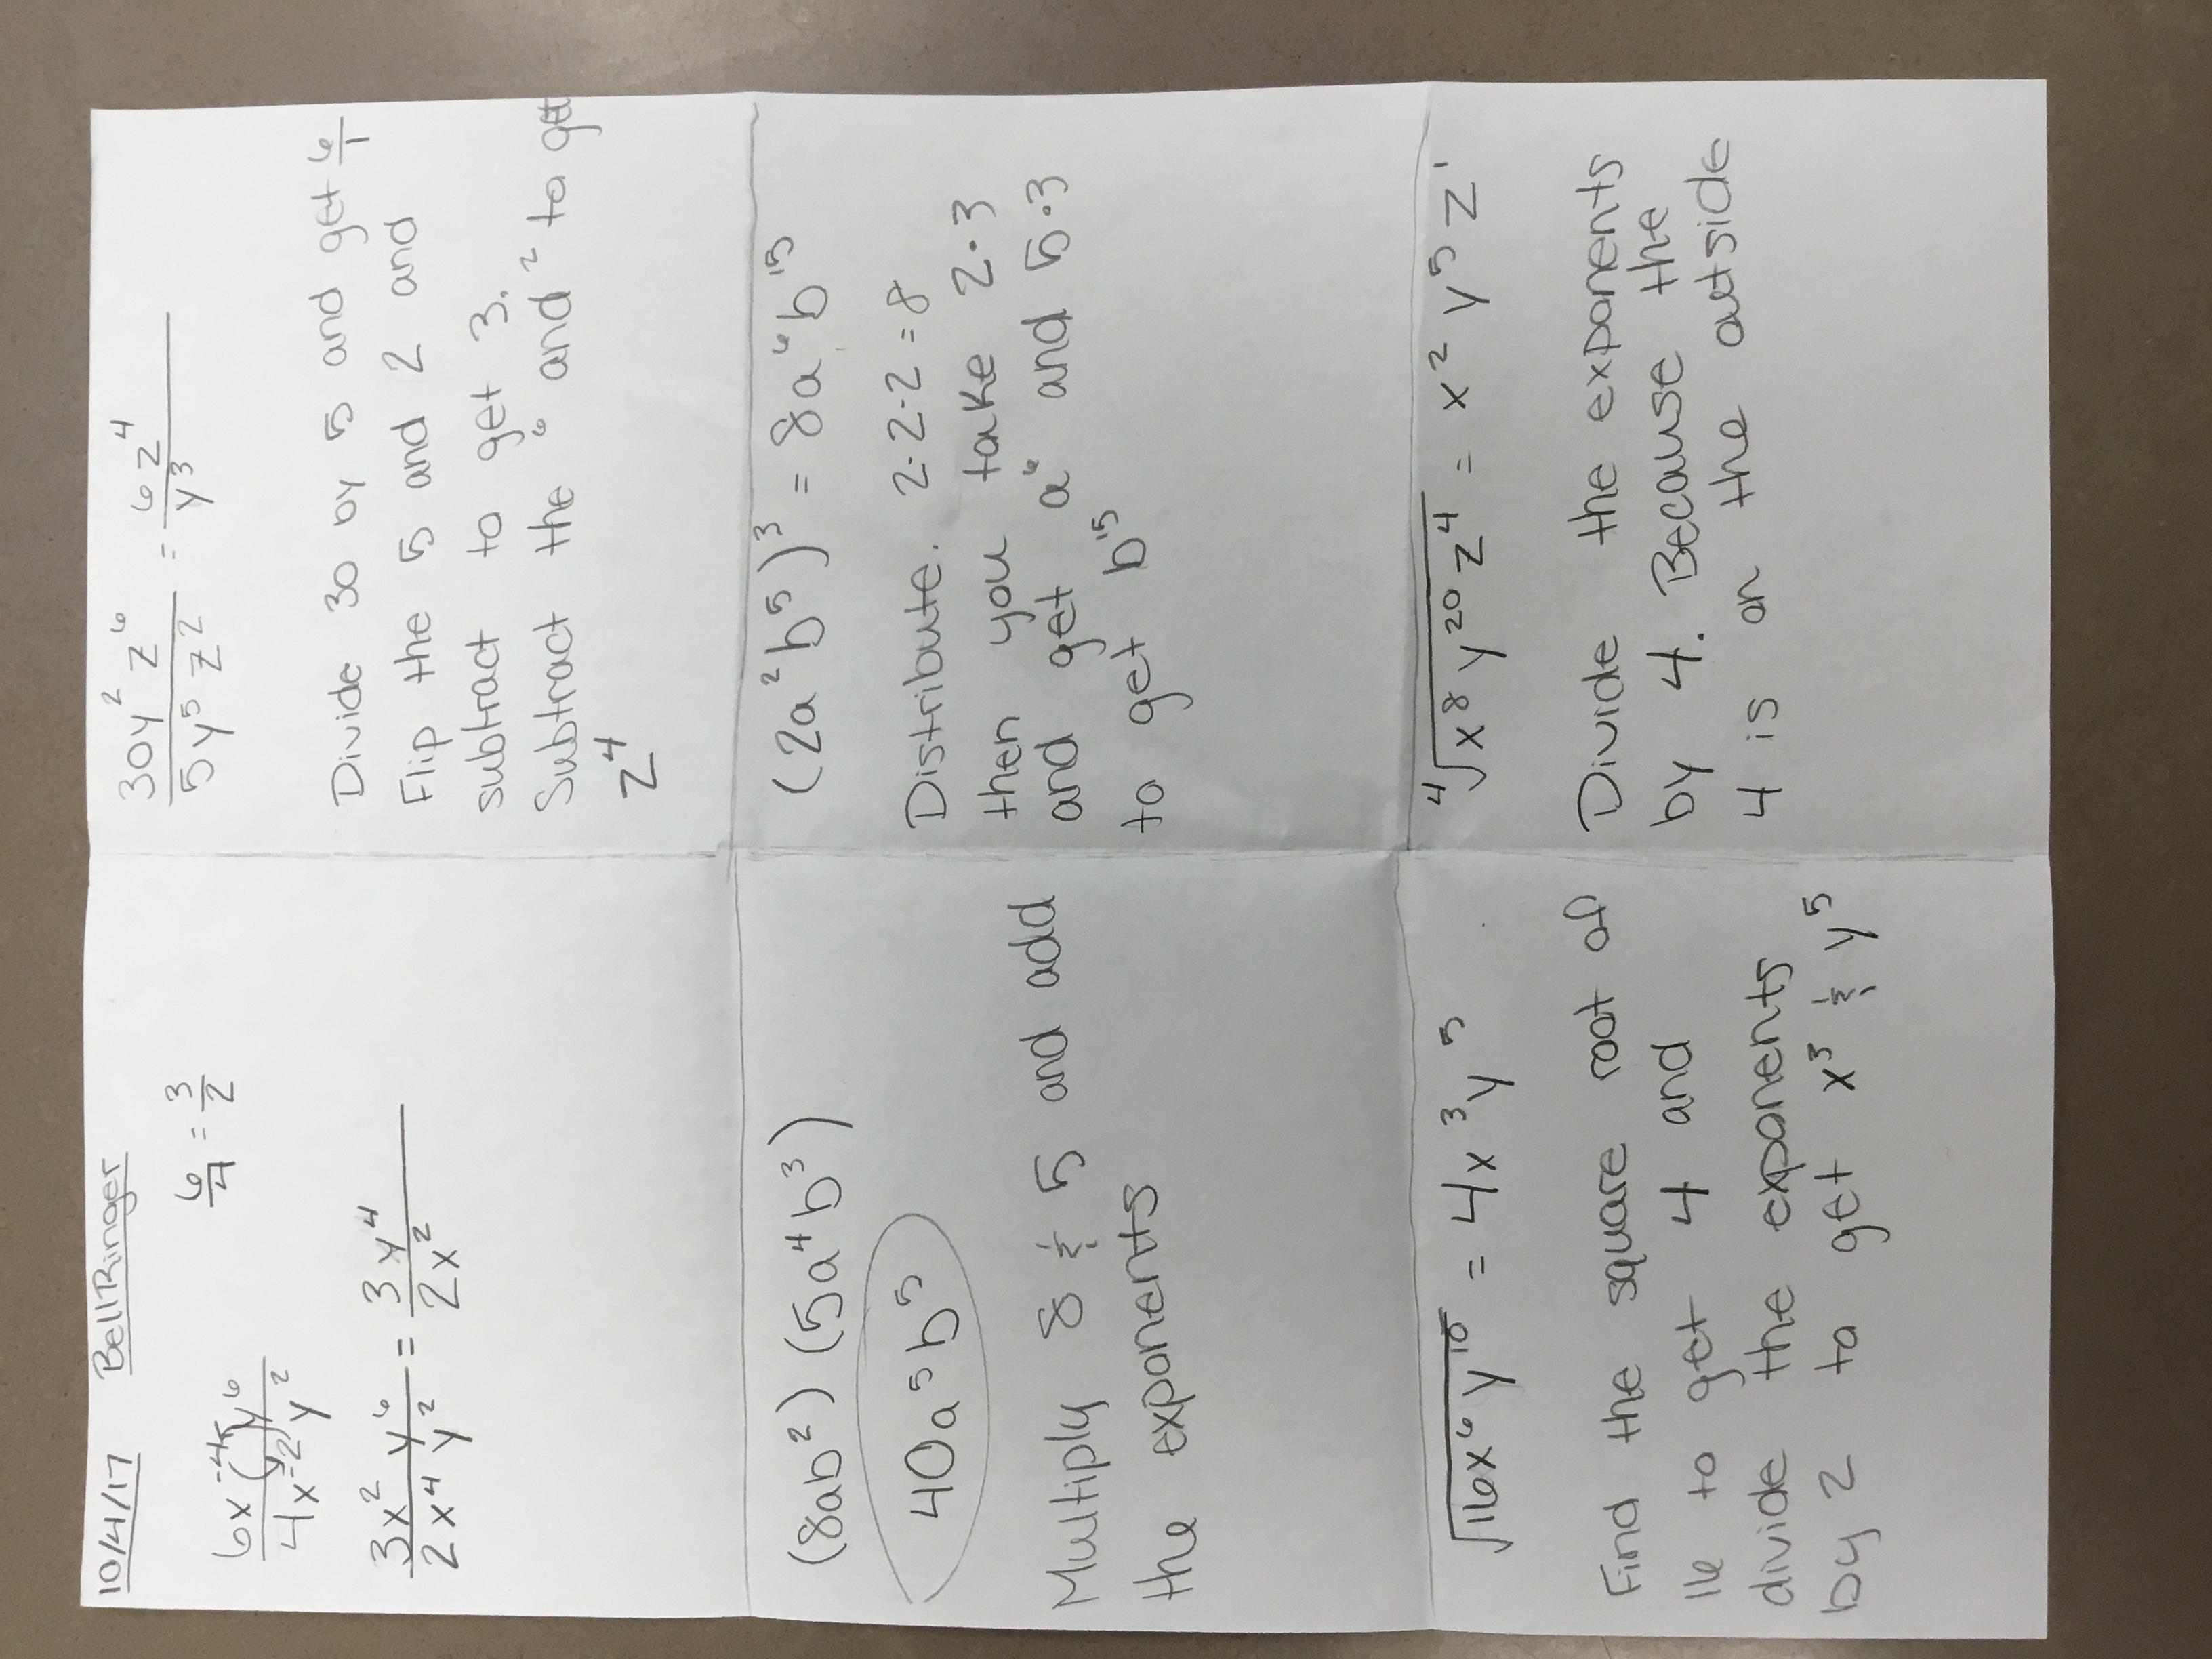 10/4/17 BellRinger
6/4 = 3/2
6x⁻⁴y⁶ / 4x⁻²y²
3x²y⁶ / 2x⁴y² = 3y⁴ / 2x²
30y²z⁶ / 5y⁵z² = 6z⁴ / y³
Divide 30 by 5 and get 6/1
Flip the 5 and 2 and
subtract to get 3.
Subtract the ⁶ and ² to get
z⁴
(8ab²)(5a⁴b³)
40a⁵b⁵
Multiply 8 & 5 and add
the exponents
(2a²b⁵)³ = 8a⁶b¹⁵
Distribute. 2·2·2=8
then you take 2·3
and get a⁶ and 5·3
to get b¹⁵
√16x⁶y¹⁰ = 4x³y⁵
Find the square root of
16 to get 4 and
divide the exponents
by 2 to get x³ & y⁵
⁴√x⁸y²⁰z⁴ = x²y⁵z¹
Divide the exponents
by 4. Because the
4 is on the outside